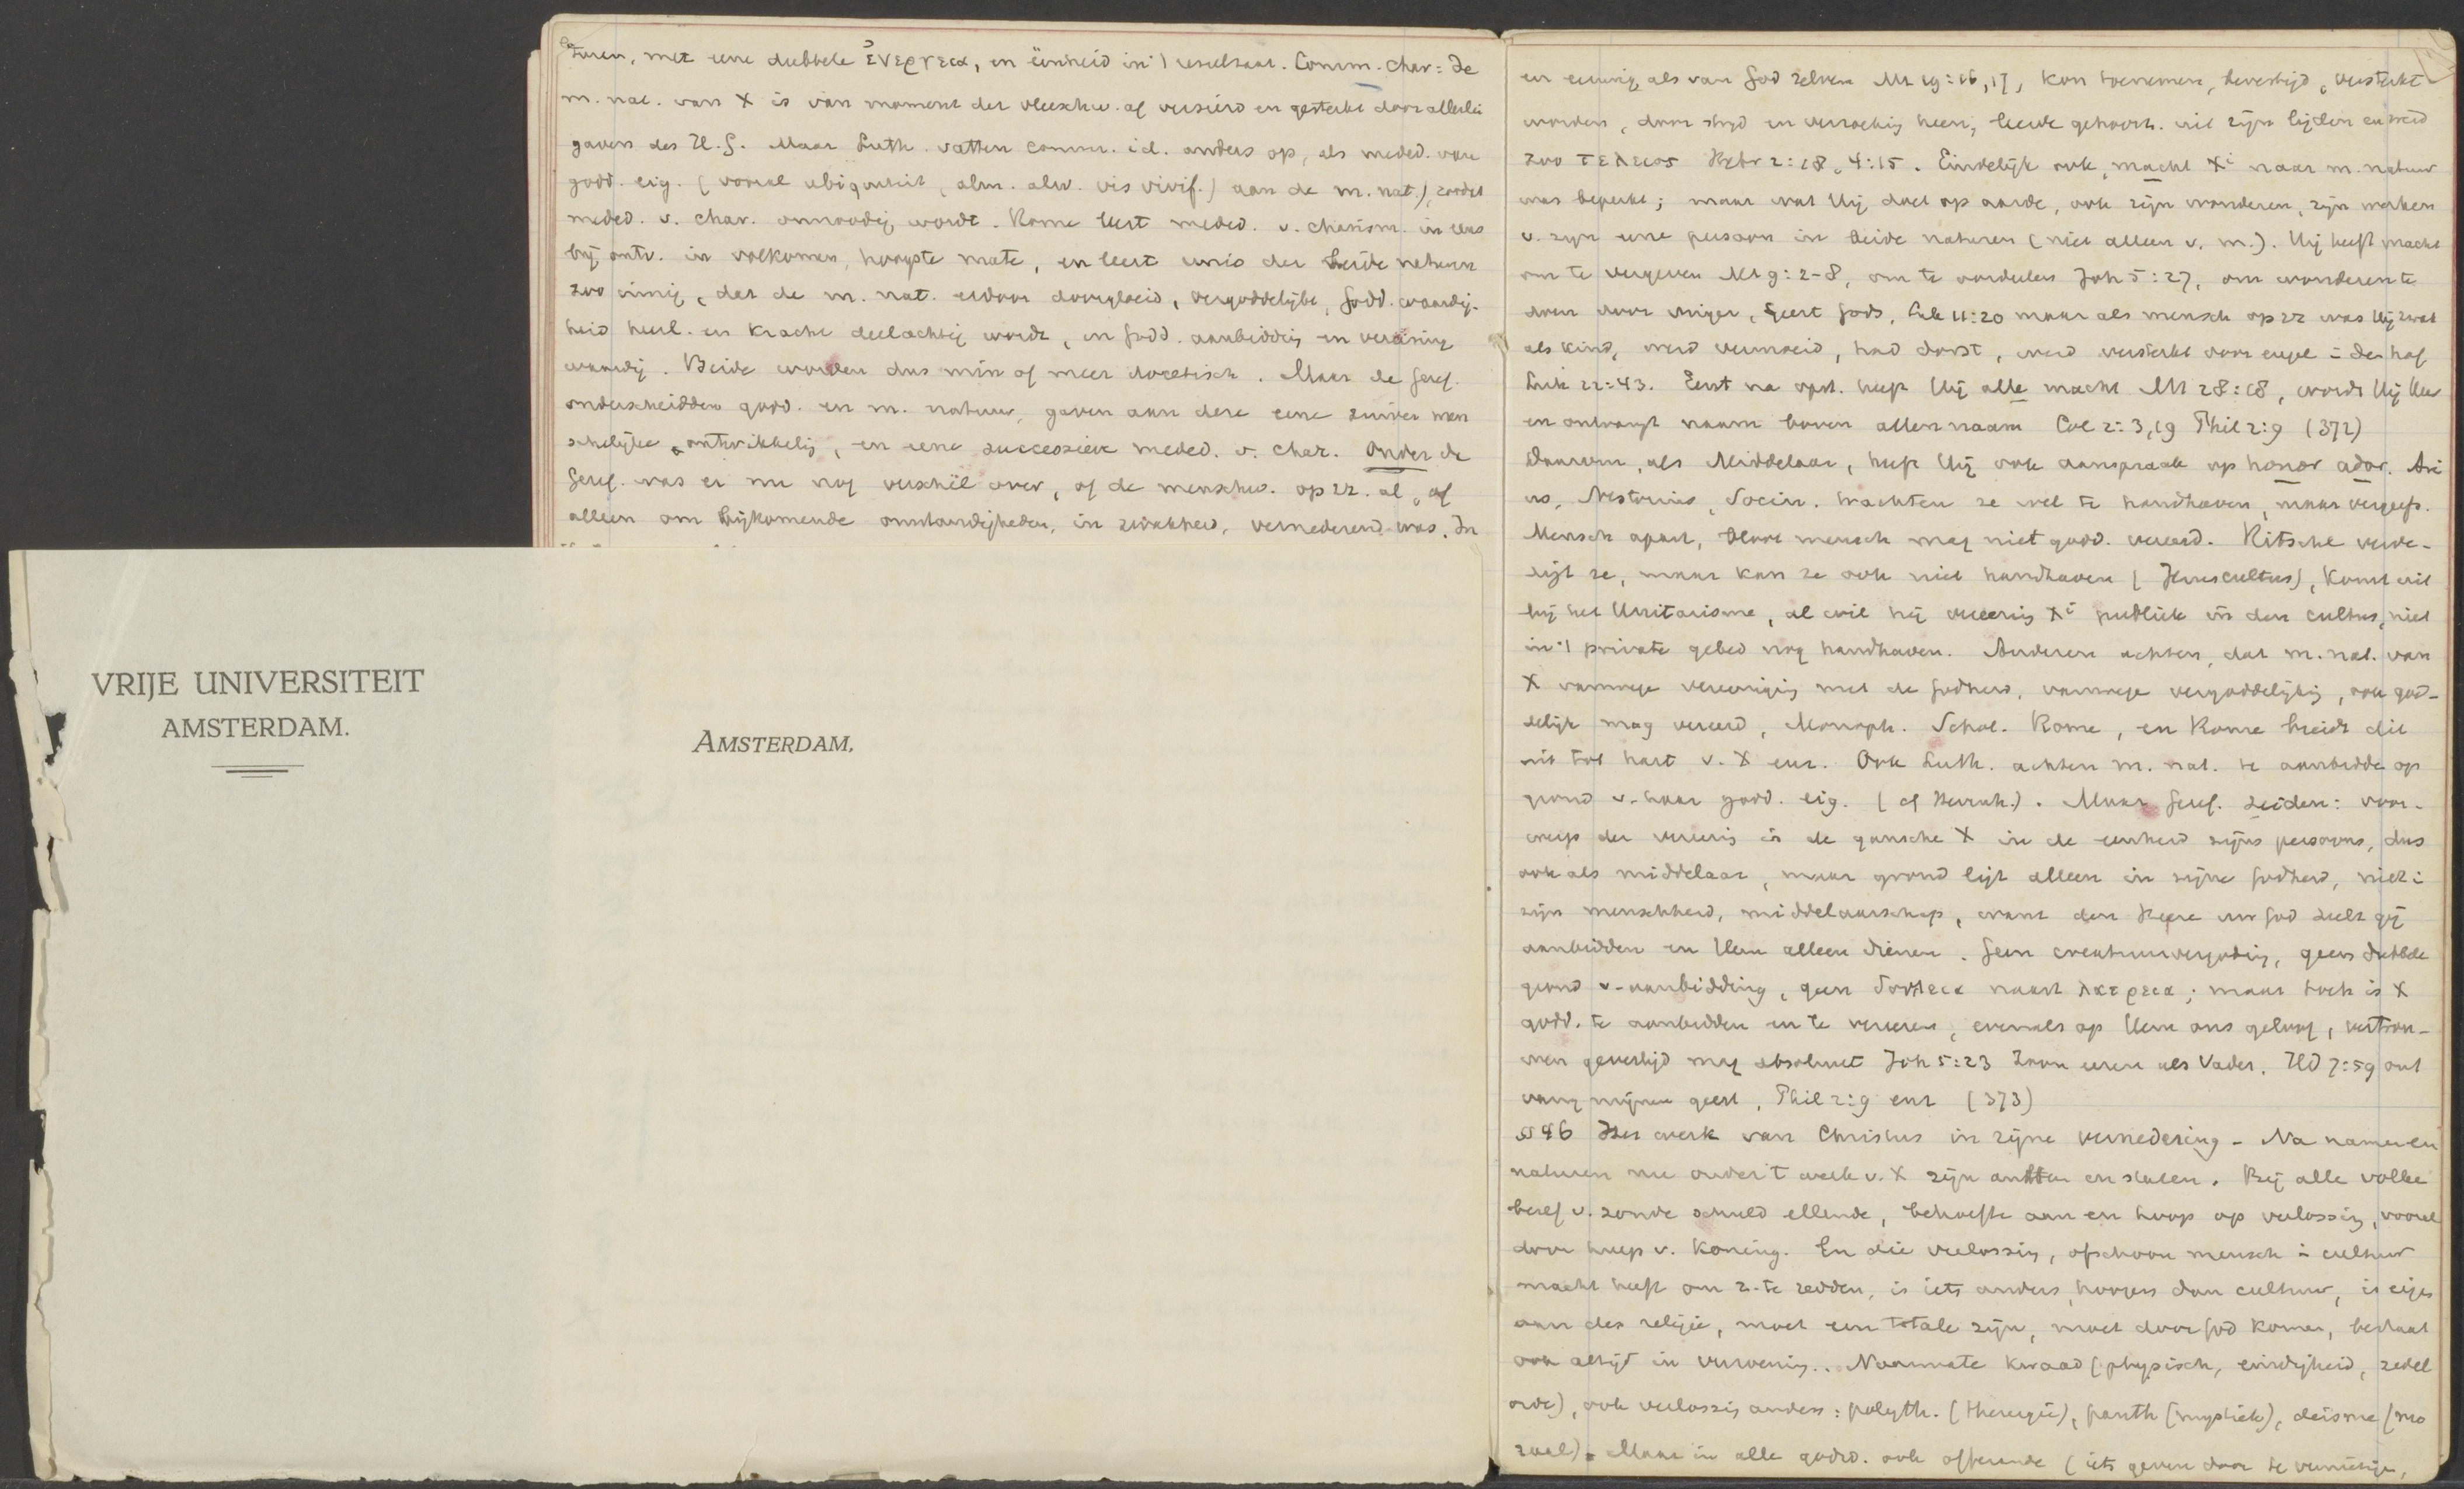 turen, met eene dubbele ἐνεργεια, en eenheid in 't resultaat. Comm. char: de
m. nat. van X is van moment der vleeschw. af versierd en gesterkt door allerlei
gaven des H. G. Maar Luth. vatten comm. id. anders op, als meded. van
godd. eig. (vooral ubiquiteit, alm. alw. vis vivif.) aan de m. nat.), zoodat
meded. v. char. onnoodig wordt. Rome leert meded. v. charism. in eens
bij ontv. in volkomen, hoogste mate, en leert unio der beide naturen
zoo innig, dat de m. nat. erdoor doorgloeid, vergoddelijkt, godd. waardig-
heid heerl. en kracht deelachtig wordt, en godd. aanbidding en vereering
waardig. Beide worden dus min of meer docetisch. Maar de Geref.
onderscheidden godd. en m. natuur, gaven aan deze eene zuiver men
schelijke ontwikkelg, en eene successieve meded. v. char. Onder de
Geref. was er nu nog verschil over, of de menschw. op zz. al, of
alleen om bijkomende omstandigheden, in zwakheid, vernederend was. In
VRIJE UNIVERSITEIT
AMSTERDAM.
AMSTERDAM,
en eeuwig als van God zelven Mt 19:16,17, kon toenemen, bevestigd, versterkt
worden, door strijd en verzoekig heen, leerde gehoorz. uit zijn lijden en werd
zoo τελειος Hebr 2:18, 4:15. Eindelijk ook, macht Xi naar m. natuur
was beperkt; maar wat Hij doet op aarde, ook zijn wonderen, zijn werken
v. zijn eene persoon in beide naturen (niet alleen v. m.). Hij heeft macht
om te vergeven Mt 9:2-8, om te oordeelen Joh 5:27, om wonderen te
doen door vinger, Geest Gods, Luk 11:20 maar als mensch op zz was Hij zwak
als kind, werd vermoeid, had dorst, werd versterkt door engel i den hof
Luk 22:43. Eerst na opst. heeft Hij alle macht Mt 28:18, wordt Hij Heer
en ontvangt naam boven allen naam Col 2:3,19 Phil 2:9 (372)
Daarom, als Middelaar, heeft Hij ook aanspraak op honor ador. Ari
us, Nestorius, Socin. trachten ze wel te handhaven, maar vergeefs.
Mensch apart, bloot mensch mag niet godd. vereerd. Ritschl verde-
digt ze, maar kan ze ook niet handhaven (Jezuscultus), komt uit
bij het Unitarisme, al wil hij vereerig Xi publiek in den cultus, niet
in 't private gebed nog handhaven. Anderen achten, dat m. nat. van
X vanwege vereenigig met de Godheid, vanwege vergoddelijkig, ook god-
delijk mag vereerd, Monoph. Schol. Rome, en Rome breidt dit
uit tot hart v. X enz. Ook Luth. achten m. nat. te aanbidde op
grond v. haar godd. eig. (cf Herrnh.). Maar Geref. zeiden: voor-
werp der vereerig is de gansche X in de eenheid zijns persoons, dus
ook als middelaar, maar grond ligt alleen in zijne Godheid, niet i
zijn menschheid, middelaarschap, want den Heere uw God zult gij
aanbidden en Hem alleen dienen. Geen creatuurvergodig, geen dubbele
grond v. aanbidding, geen δουλεια naast λατρεια; maar toch is X
godd. te aanbidden en te vereeren, evenals op Hem ons geloof, vertrou-
wen gevestigd mag absoluut Joh 5:23 Zoon eeren als Vader. Hd 7:59 ont
vang mijnen geest, Phil 2:9 enz (373)
§ 46 Het werk van Christus in zijne vernedering - Na namen en
naturen nu onder 't werk v. X zijn ambten en staten. Bij alle volke
besef v. zonde schuld ellende, behoefte aan en hoop op verlossig, vooral
door hulp v. Koning. En die verlossig, ofschoon mensch i cultuur
macht heeft om z. te redden, is iets anders, hoogers dan cultuur, is eigen
aan des religie, moet een totale zijn, moet door God komen, bestaat
ook altijd in verzoenig.. Naarmate kwaad (physisch, eindigheid, zedel
orde), ook verlossig anders: polyth. (theurgie), panth (mystiek), deisme (mo
raal). Maar in alle godsd. ook offerande (iets geven door te vernietige,